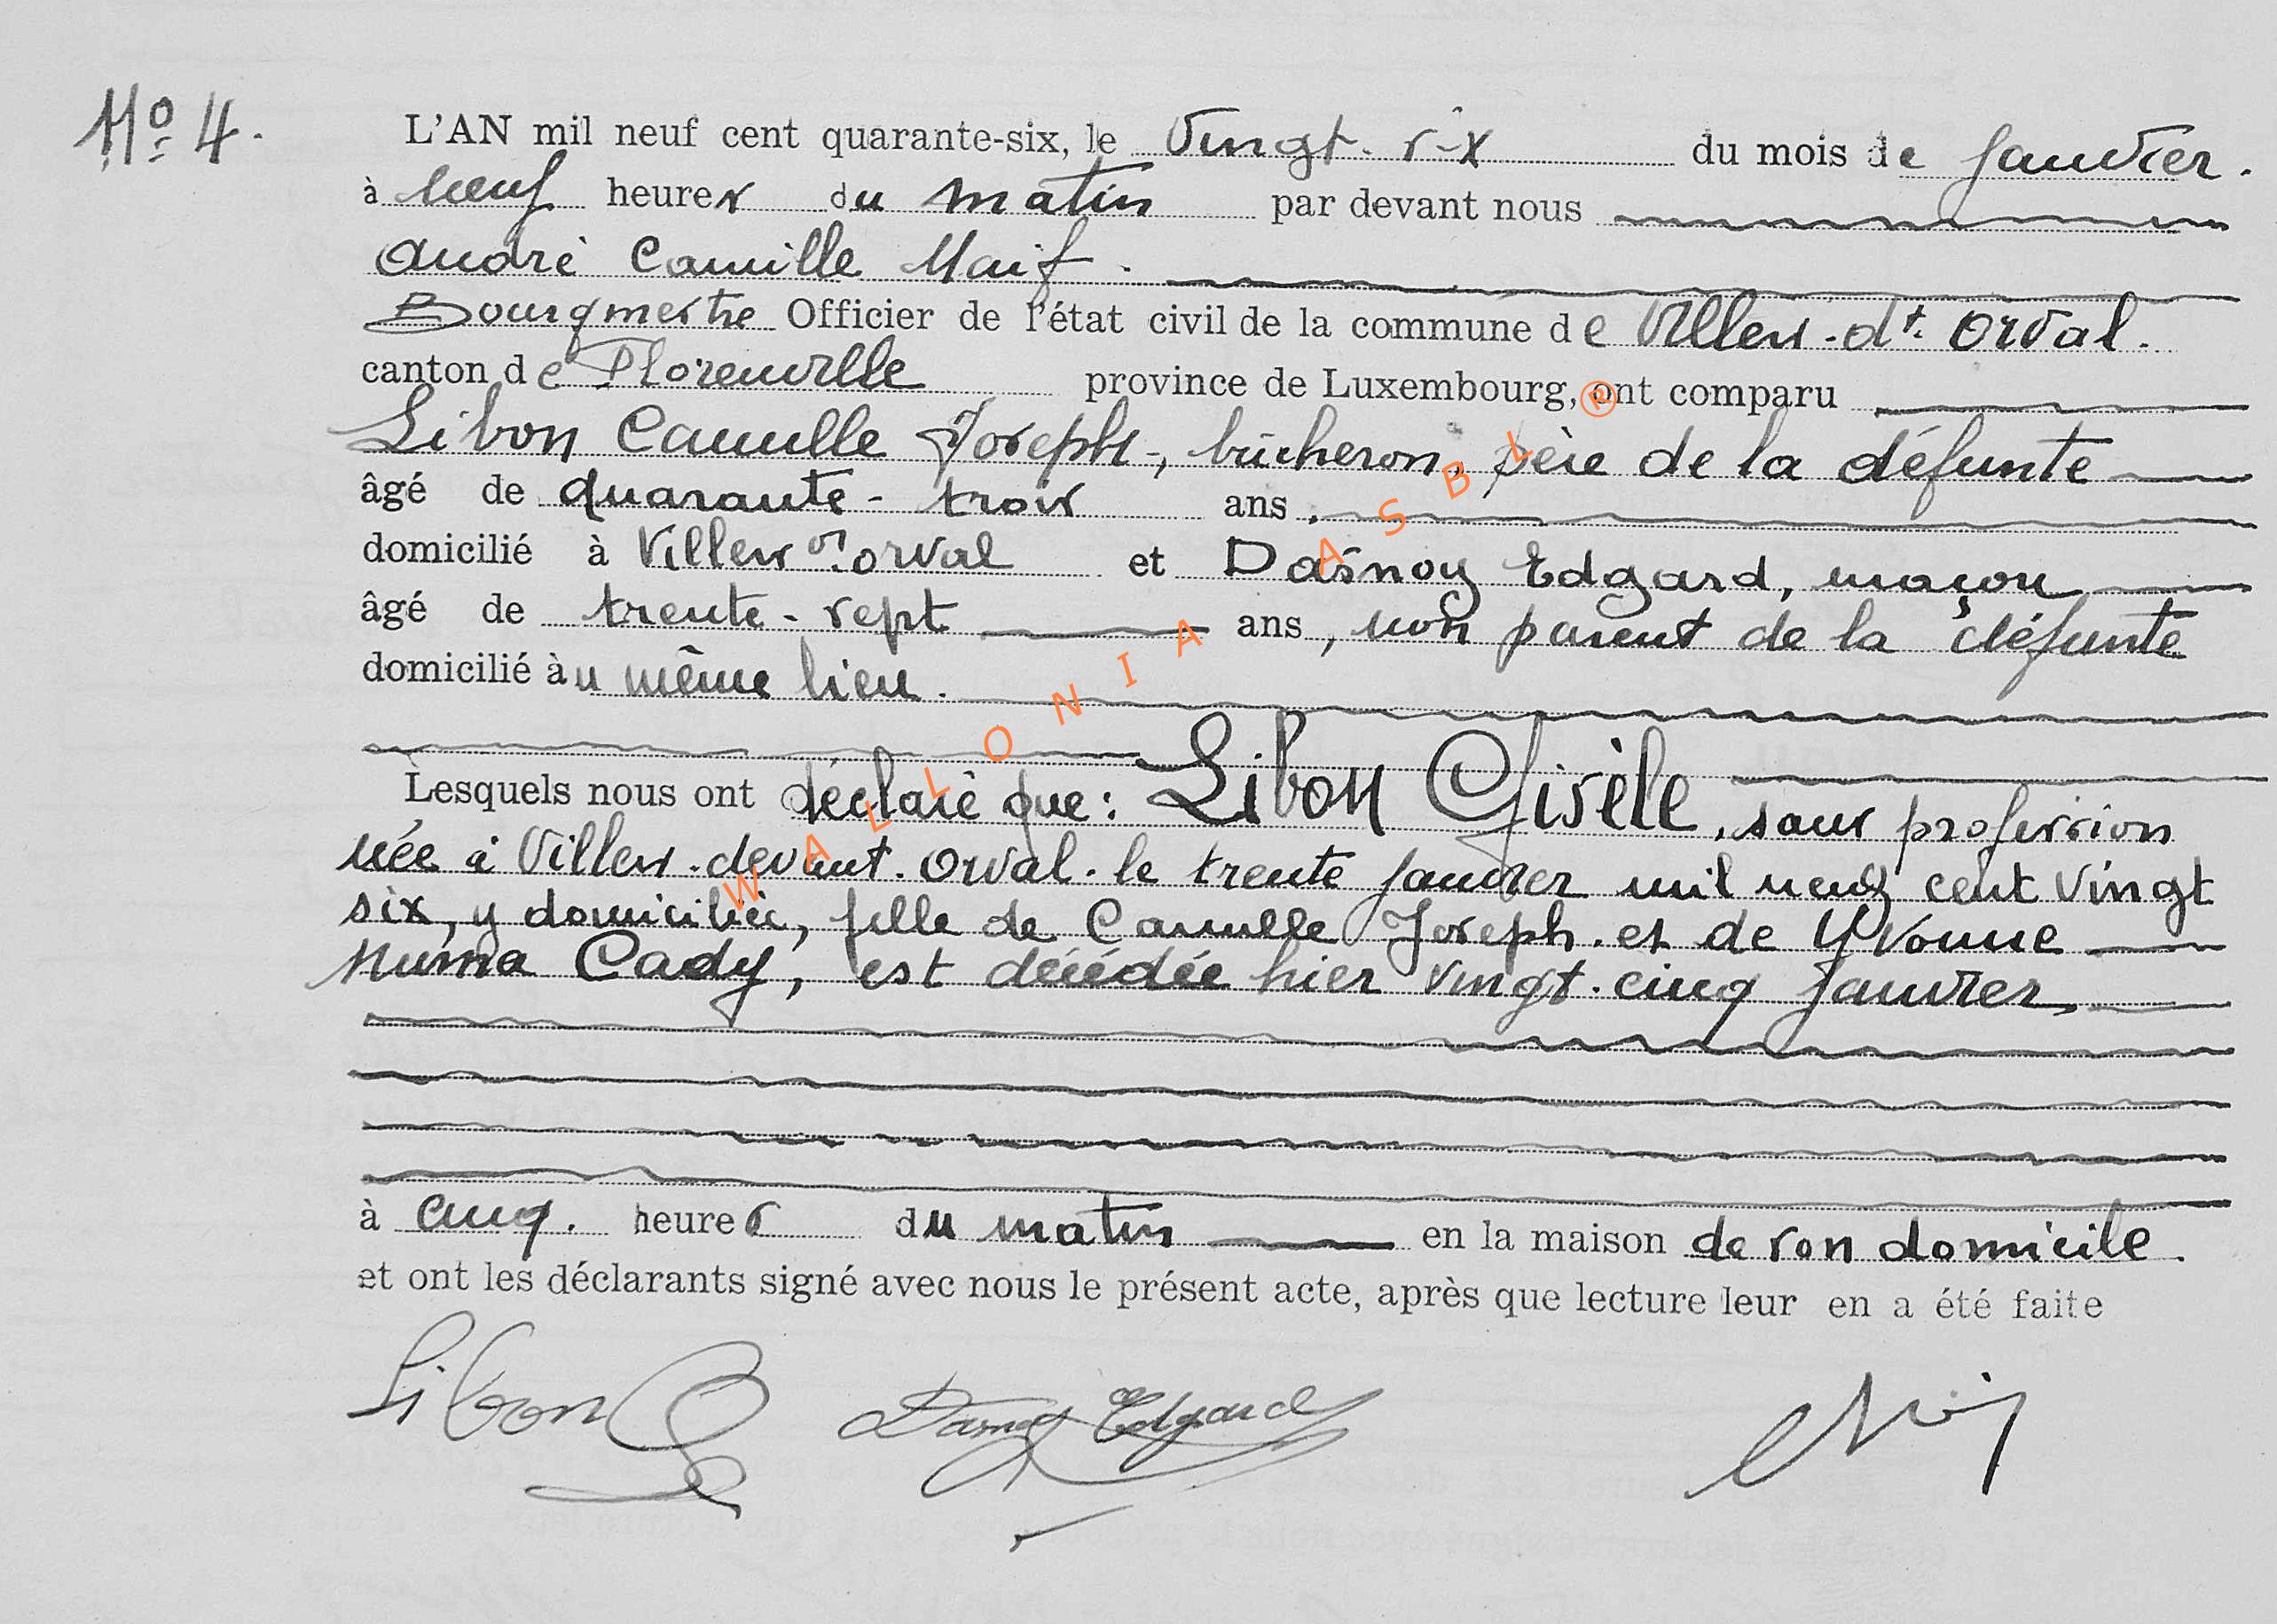 No 4.
L'AN mil neuf cent quarante-six, le Vingt-six du mois de Janvier.
à neuf heures du matin par devant nous
André Camille Naif.
Bourgmestre Officier de l'état civil de la commune de Villers-dt. Orval.
canton de Florenville province de Luxembourg, ont comparu
Libon Camille Joseph, bûcheron, père de la défunte
âgé de quarante-trois ans,
domicilié à Villers dt. orval et Dasnoy Edgard, maçon
âgé de trente-sept ans, non parent de la défunte
domicilié au même lieu.
Lesquels nous ont déclaré que: Libon Gisèle, sans profession
née à Villers-devant-Orval. le trente Janvier mil neuf cent vingt
six, y domiciliée, fille de Camille Joseph. et de Yvonne
Numa Cady, est décédée hier vingt-cinq Janvier,
à cinq. heures du matin en la maison de son domicile.
et ont les déclarants signé avec nous le présent acte, après que lecture leur en a été faite
Libon Dasnoy Edgard
WALLONIA ASBL ®